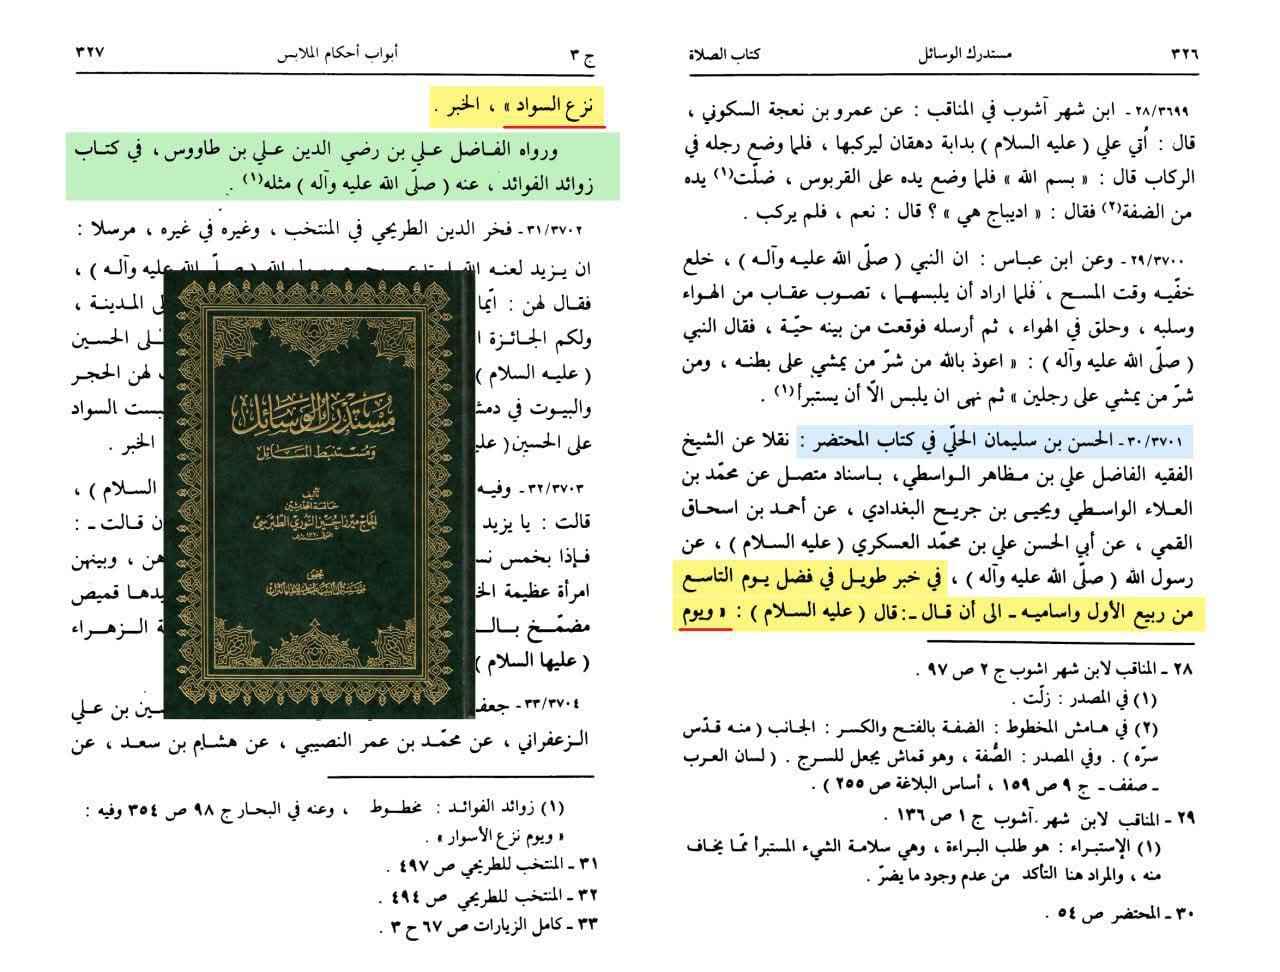 ٣٢٦ مستدرك الوسائل كتاب الصلاة
٢٨/٣٦٩٩ ـ ابن شهر آشوب في المناقب : عن عمرو بن نعجة السكوني ،
قال : أُتي علي ( عليه السلام ) بدابة دهقان ليركبها ، فلما وضع رجله في
الركاب قال : « بسم الله » فلما وضع يده على القربوس ، ضلّت(١) يده
من الضفة(٢) فقال : « اديباج هي » ؟ قال : نعم ، فلم يركب .
٢٩/٣٧٠٠ ـ وعن ابن عباس : ان النبي ( صلّى الله عليه وآله ) ، خلع
خفّيه وقت المسح ، فلما اراد أن يلبسهما ، تصوب عقاب من الهواء
وسلبه ، وحلق في الهواء ، ثم أرسله فوقعت من بينه حيّة ، فقال النبي
( صلّى الله عليه وآله ) : « اعوذ بالله من شرّ من يمشي على بطنه ، ومن
شرّ من يمشي على رجلين » ثم نهى ان يلبس الاّ أن يستبرأ(١) .
٣٠/٣٧٠١ ـ الحسن بن سليمان الحلّي في كتاب المحتضر : نقلا عن الشيخ
الفقيه الفاضل علي بن مظاهر الواسطي ، باسناد متصل عن محمّد بن
العلاء الواسطي ويحيى بن جريح البغدادي ، عن أحمد بن اسحاق
القمي ، عن أبي الحسن علي بن محمّد العسكري ( عليه السلام ) ، عن
رسول الله ( صلّى الله عليه وآله ) ، في خبر طويل في فضل يوم التاسع
من ربيع الأول واساميه ـ الى أن قال ـ : قال ( عليه السلام ) : « ويوم
٢٨ ـ المناقب لابن شهر اشوب ج ٢ ص ٩٧ .
(١) في المصدر : زلّت .
(٢) في هامش المخطوط : الضفة بالفتح والكسر : الجانب ( منه قدّس
سرّه ) . وفي المصدر : الصُّفة ، وهو قماش يجعل للسرج . ( لسان العرب
ـ صفف ـ ج ٩ ص ١٥٩ ، أساس البلاغة ص ٢٥٥ ) .
٢٩ ـ المناقب لابن شهر آشوب ج ١ ص ١٣٦ .
(١) الإستبراء : هو طلب البراءة ، وهي سلامة الشيء المستبرأ ممّا يخاف
منه ، والمراد هنا التأكد من عدم وجود ما يضرّ .
٣٠ ـ المحتضر ص ٥٤ .
ج ٣ أبواب أحكام الملابس ٣٢٧
نزع السواد » ، الخبر .
ورواه الفاضل علي بن رضي الدين علي بن طاووس ، في كتاب
زوائد الفوائد ، عنه ( صلّى الله عليه وآله ) مثله(١) .
٣١/٣٧٠٢ ـ فخر الدين الطريحي في المنتخب ، وغيره في غيره ، مرسلا :
ان يزيد لعنه الله استدعى بحرم رسول الله ( صلّى الله عليه وآله ) ،
فقال لهن : المدينة ،
ولكم الجائزة الحسين
( عليه السلام ) لهن الحجر
والبيوت في السواد
على الحسين ( الخبر .
٣٢/٣٧٠٣ ـ وفيه السلام ) ،
قالت : يا يزيد قالت ـ :
فإذا بخمس وبينهن
امرأة عظيمة قميص
مضمّخ الزهراء
( عليها السلام )
٣٣/٣٧٠٤ ـ بن علي
الزعفراني ، عن محمّد بن عمر النصيبي ، عن هشام بن سعد ، عن
(١) زوائد الفوائد : مخطوط ، وعنه في البحار ج ٩٨ ص ٣٥٤ وفيه :
« ويوم نزع الأسوار » .
٣١ ـ المنتخب للطريحي ص ٤٩٧ .
٣٢ ـ المنتخب للطريحي ص ٤٩٤ .
٣٣ ـ كامل الزيارات ص ٦٧ ح ٣ .
مستدرك الوسائل
ومستنبط المسائل
تأليف
خاتمة المحدثين
الحاج ميرزا حسين النوري الطبرسي
تحقيق